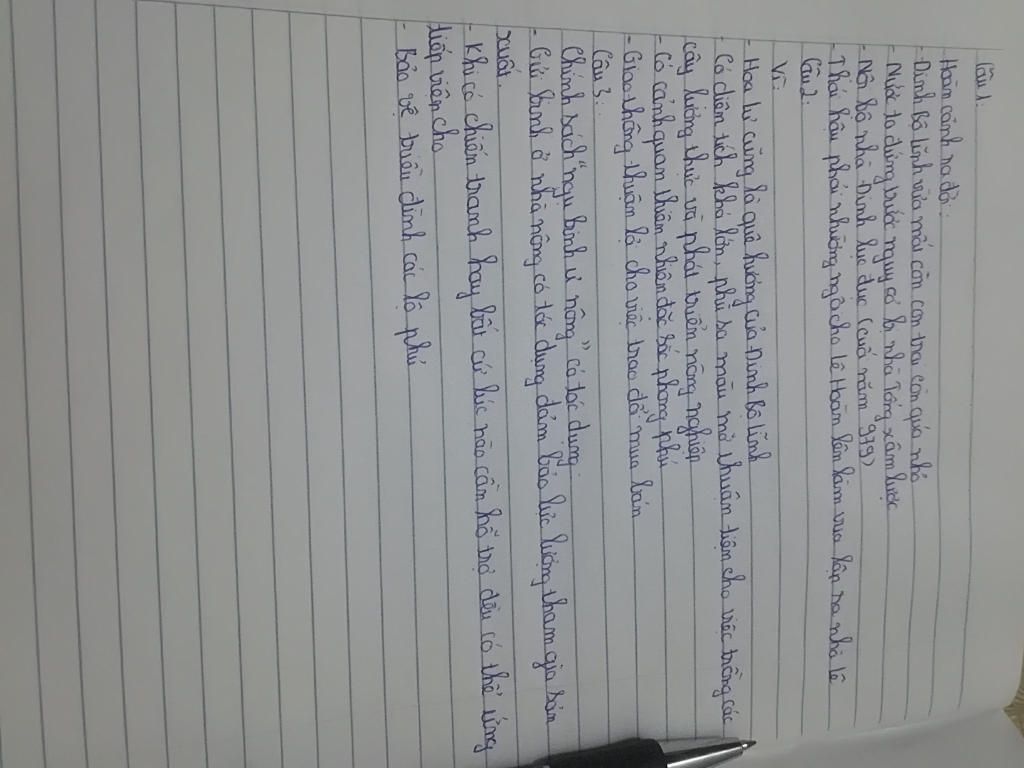 Câu 1:
Hoàn cảnh ra đời:
- Đinh Bộ Lĩnh vừa mất còn con trai còn quá nhỏ
- Nước ta đứng trước nguy cơ bị nhà Tống xâm lược
- Nội bộ nhà Đinh lục đục (cuối năm 979)
- Thái hậu phải nhường ngôi cho Lê Hoàn lên làm vua lập ra nhà Lê
Câu 2:
Vì:
- Hoa Lư cũng là quê hương của Đinh Bộ Lĩnh
- Có diện tích khá lớn, phù sa màu mỡ thuận tiện cho việc trồng các
cây lương thực và phát triển nông nghiệp
- Có cảnh quan thiên nhiên đặc sắc phong phú
- Giao thông thuận lợi cho việc trao đổi mua bán
Câu 3:
Chính sách "ngụ binh ư nông" có tác dụng:
- Gửi binh ở nhà nông có tác dụng đảm bảo lực lượng tham gia sản
xuất.
- Khi có chiến tranh hay bất cứ lúc nào cần hỗ trợ đều có thể ứng
tiếp viện cho
- Bảo vệ triều đình cai lô phủ